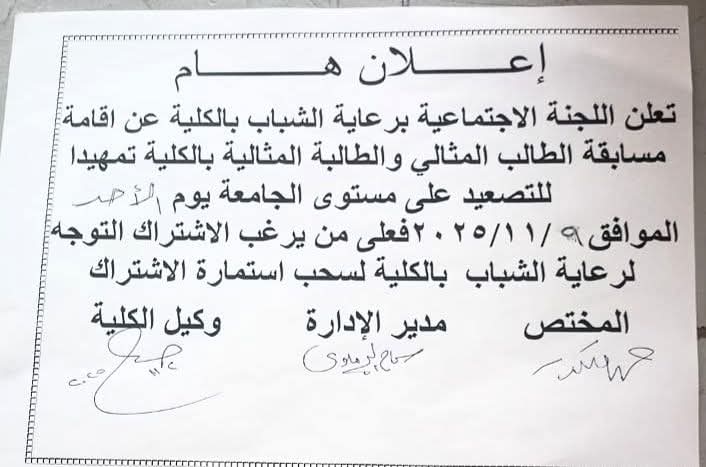 إعـــلان هـــام
تعلن اللجنة الاجتماعية برعاية الشباب بالكلية عن اقامة
مسابقة الطالب المثالي والطالبة المثالية بالكلية تمهيدا
للتصعيد على مستوى الجامعة يوم الأحد
الموافق ٩ /٢٠٢٥/١١ فعلى من يرغب الاشتراك التوجه
لرعاية الشباب بالكلية لسحب استمارة الاشتراك
المختص مدير الإدارة وكيل الكلية